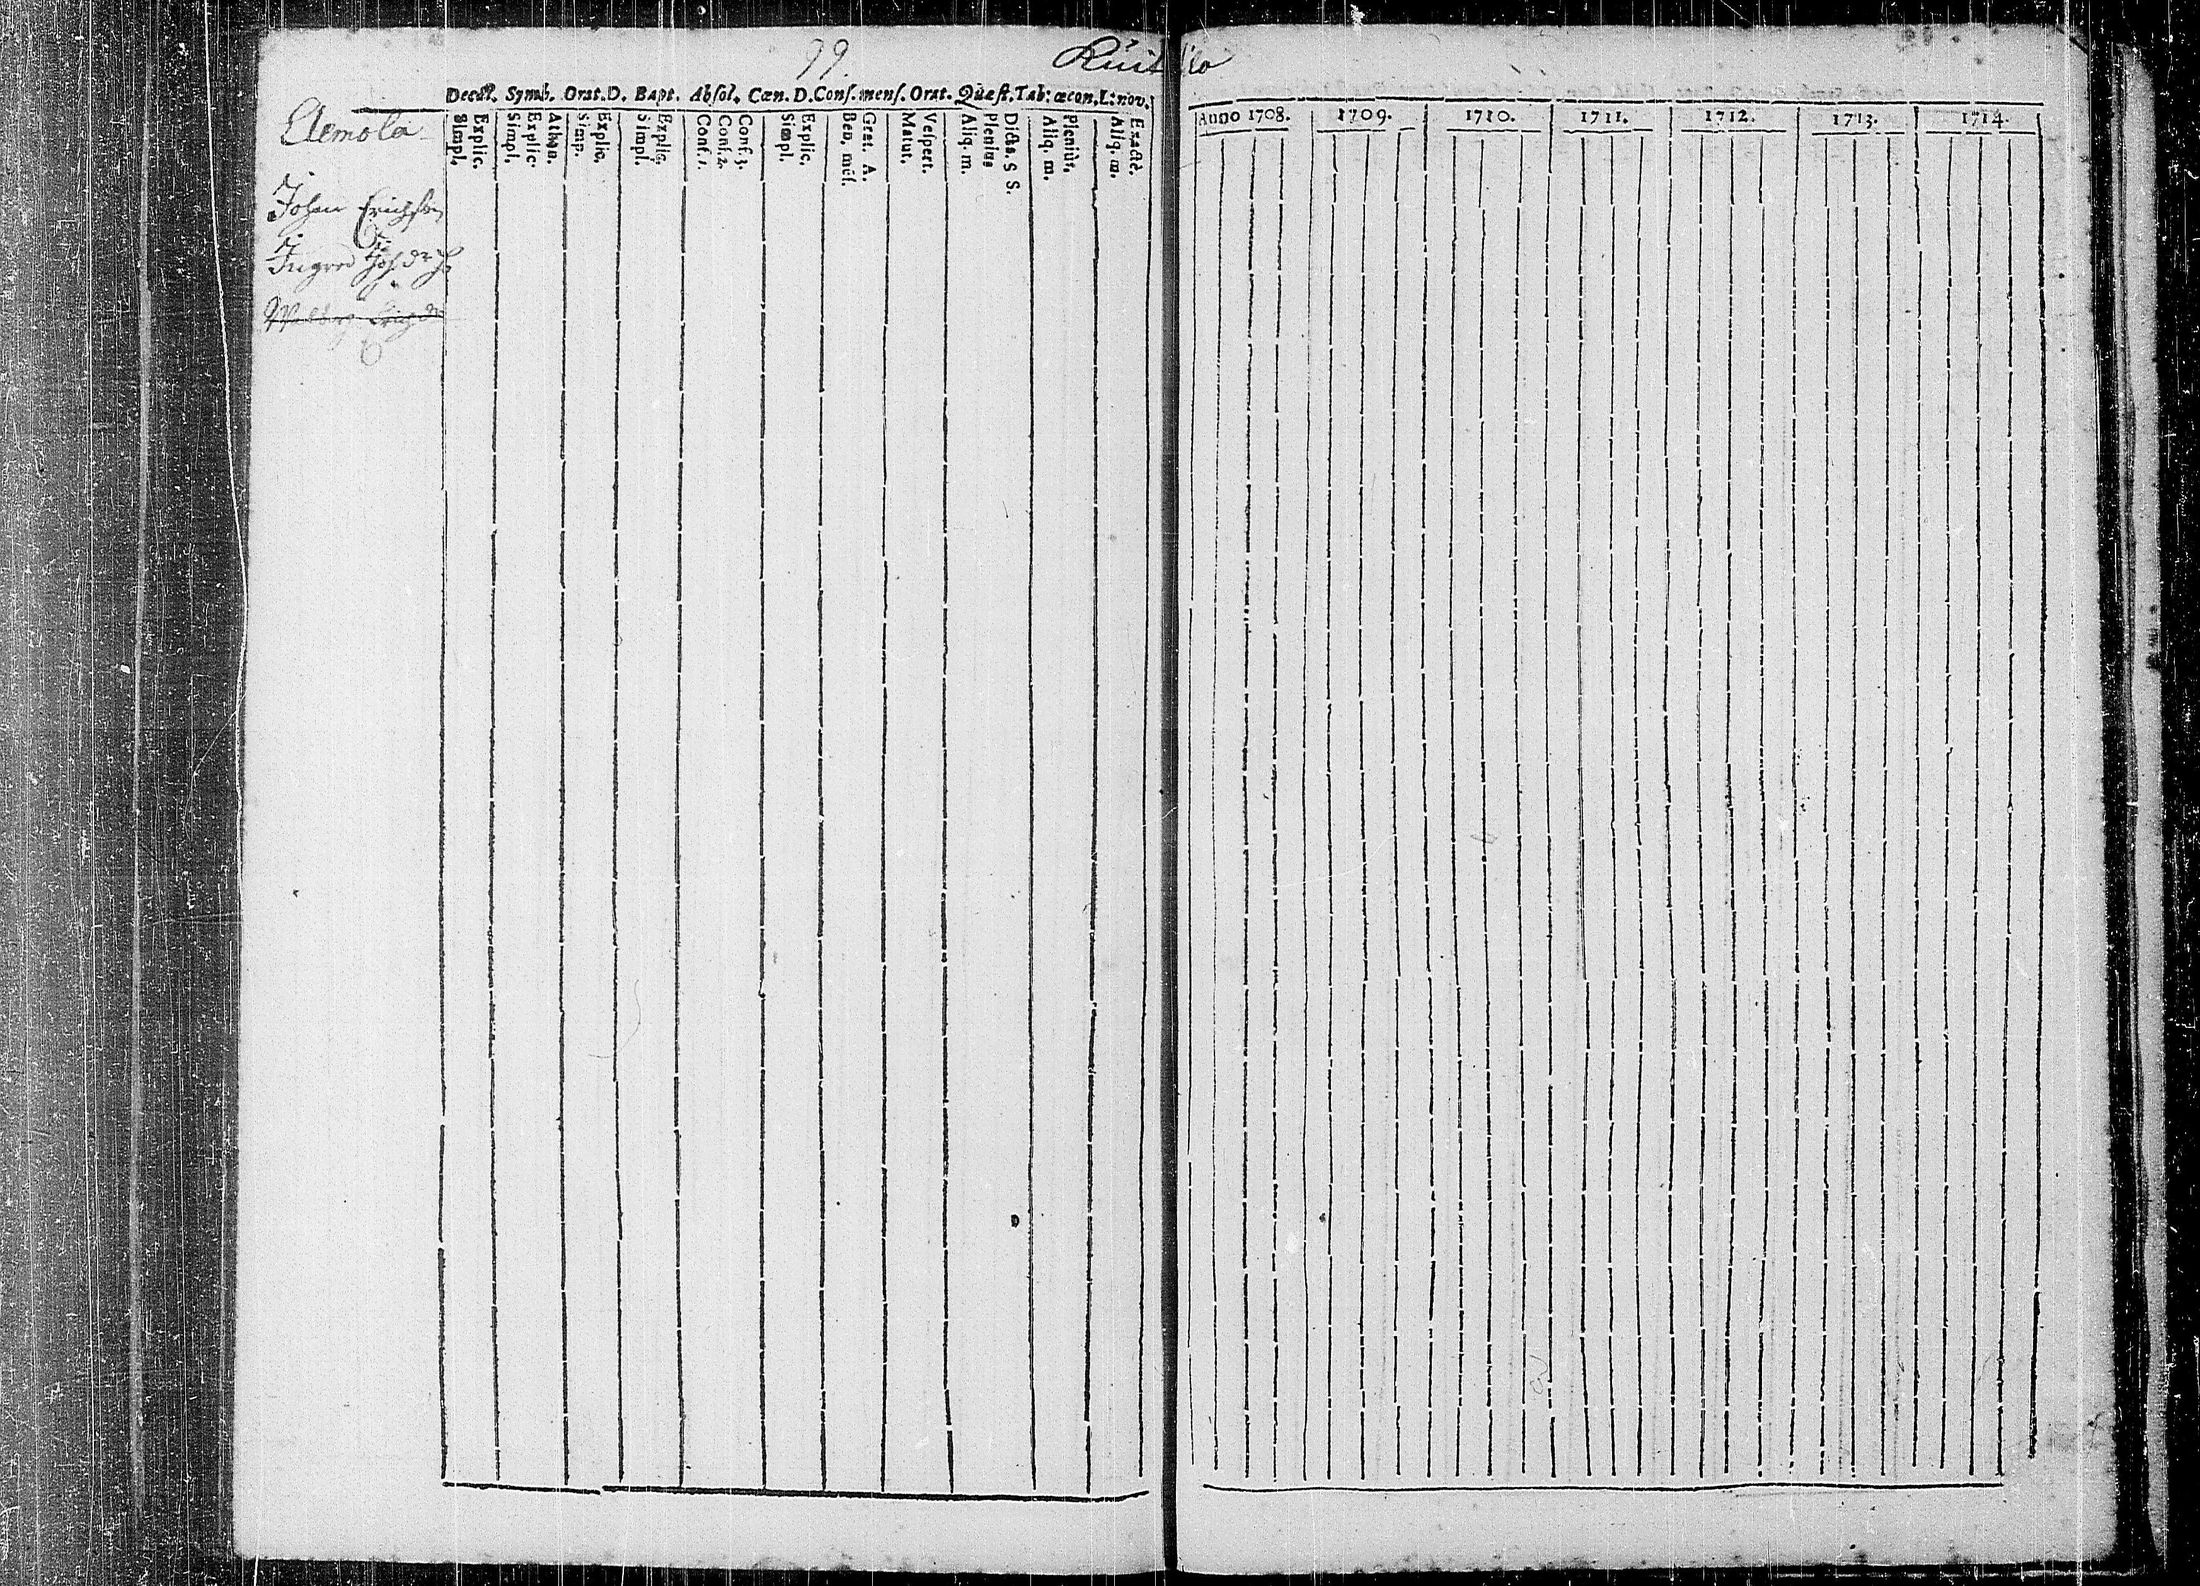 99.
Decal. Symb. Orat. D. Bapt. Absol. Cœn. D. Conf. mens. Orat. Quæst. Tab: œcon. L: nov.
Explic.
Simpl.
Athan.
Explic.
Simpl.
Explic.
Simp.
Explic.
Simpl.
Conf. 3.
Conf. 2.
Conf. 1.
Explic.
Simpl.
Grat. A.
Ben. mēs.
Vespert.
Matut.
Dicta. S S.
Plenius
Aliq. m.
Pleniùs.
Aliq. m.
Exactè.
Aliq. m.
Johan Erichson
Ingred
Anno 1708. 1709. 1710. 1711. 1712. 1713. 1714.